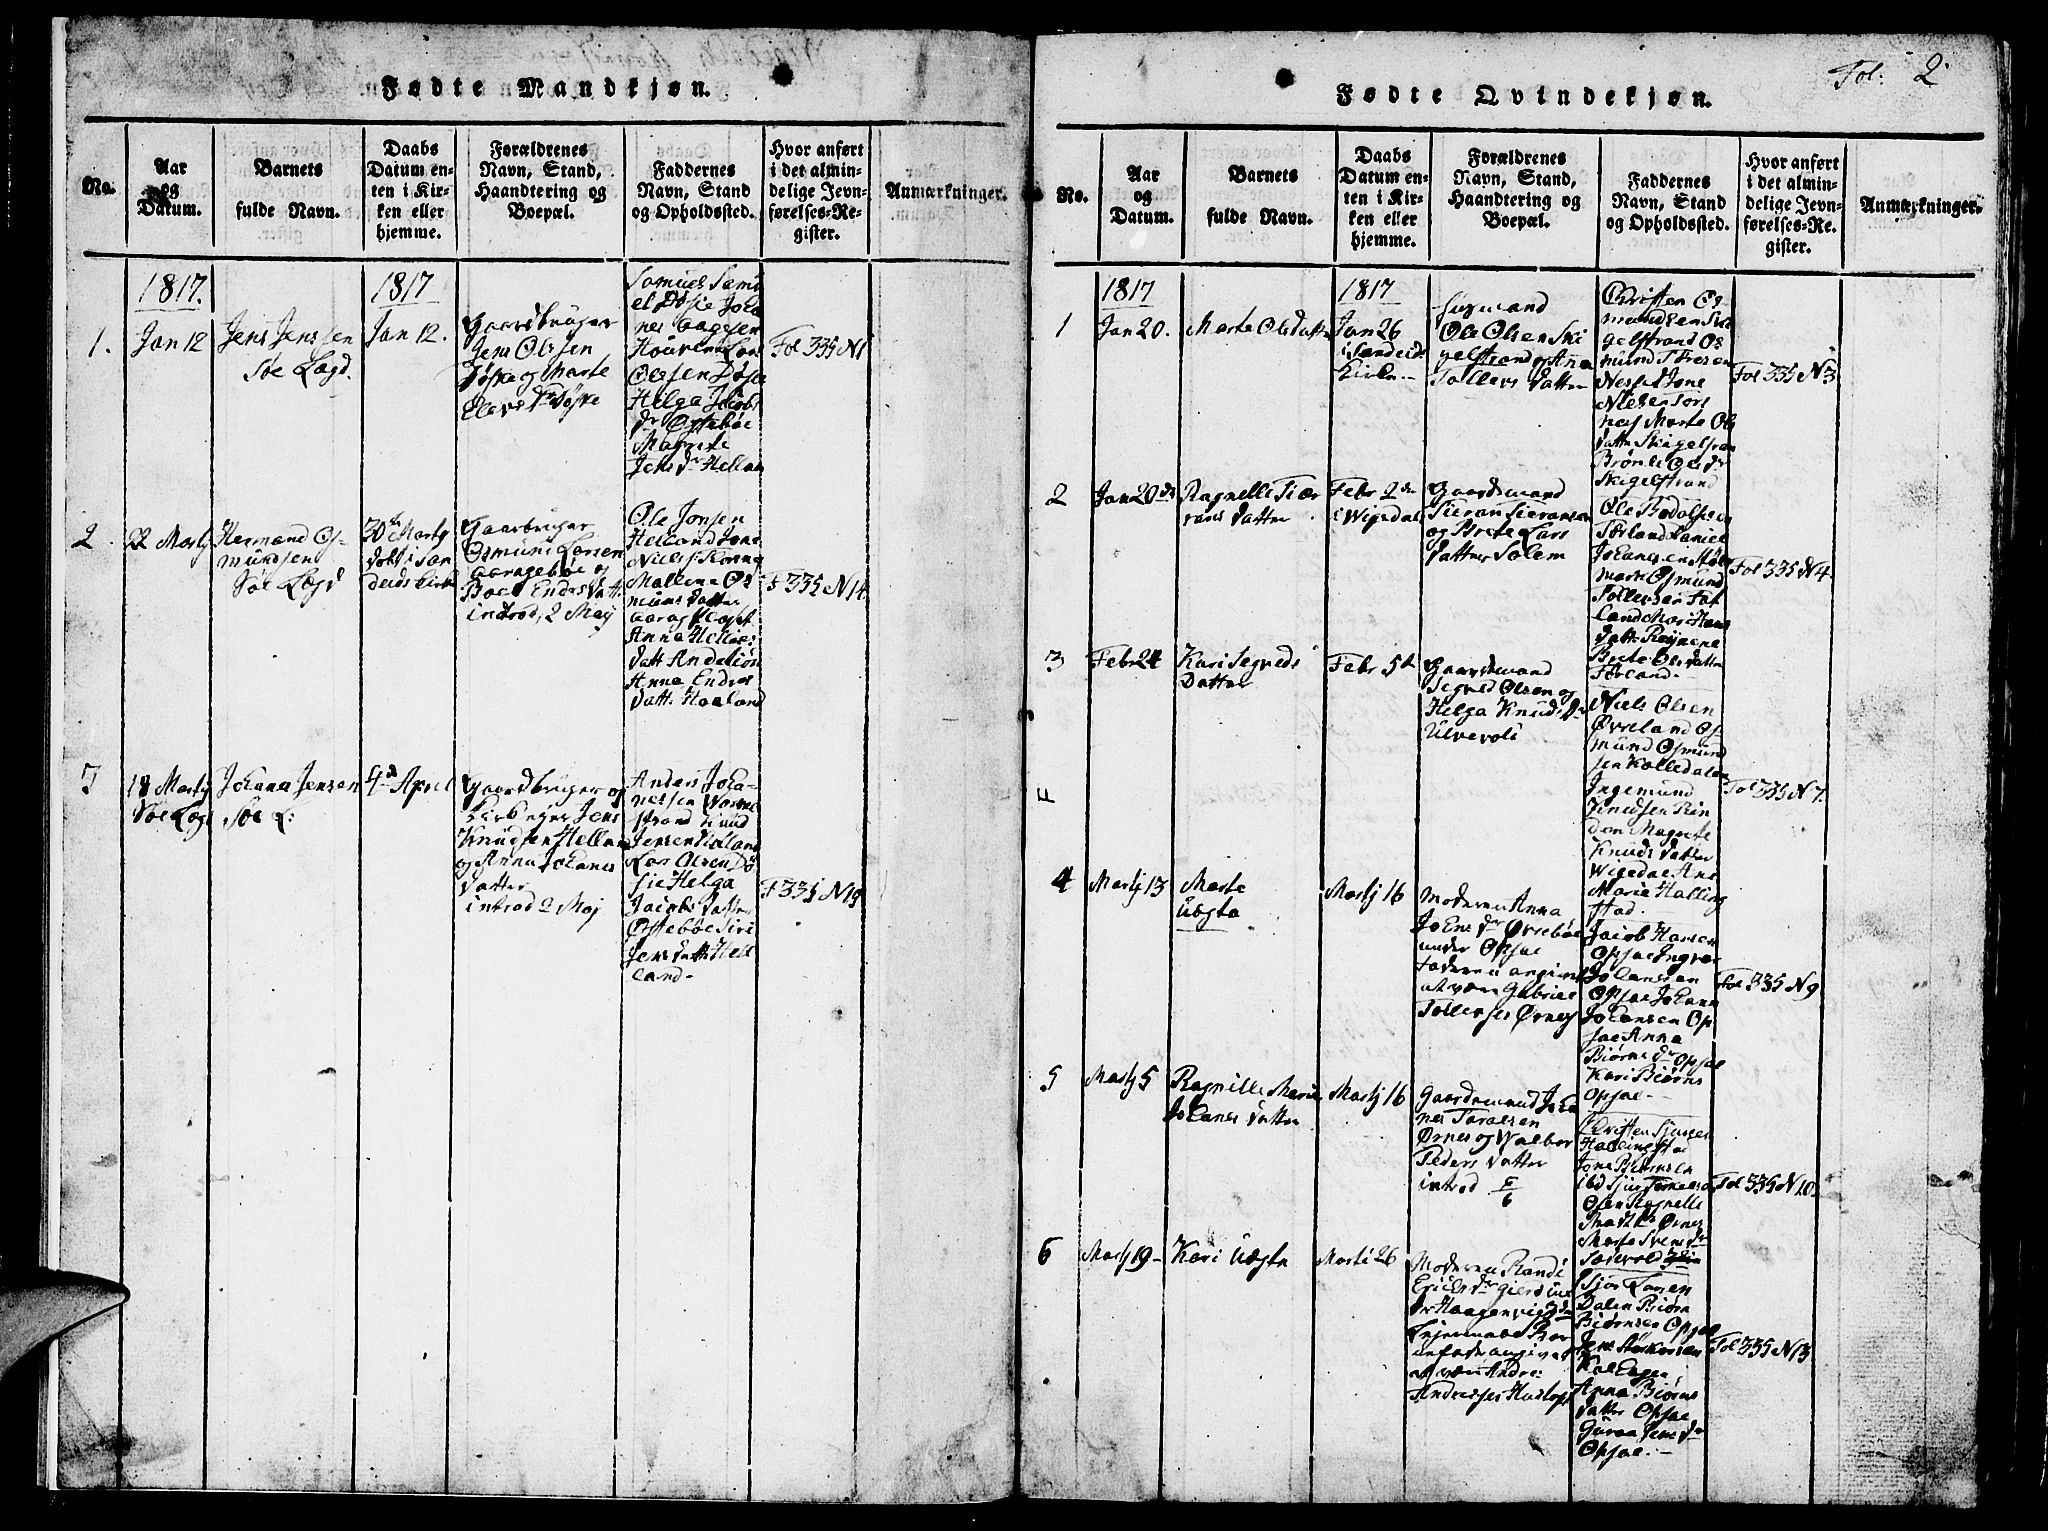 Fødte Mandkjøn.
No.
Aar
og
Datum.
Barnets
fulde Navn.
Daabs
Datum en-
ten i Kir-
ken eller
hjemme.
Forældrenes
Navn, Stand,
Haandtering og
Boepæl.
Faddernes
Navn, Stand
og Opholdssted.
Hvor anført
i det almin-
delige Jevn-
førelses-Re-
gister.
Anmærkninger.
1817.
1817
1.
Jan 12
Jens Jenssen
Søe Lægd.
Jan 12.
Gaardbruger
Jens Olssen
Døske og Marte
Elevs Dr Døske
Samuel Samu
el Døsie Joha
nes Aagesen
Houven Lars
Olssen Døsie
Helga Jacobs
Dr Østebøe
Magrete
Jens Dr Hellan
Fol 335 N 1
2.
22 Martj
Hermand Os-
mundsen
Søe Lægd
30te Martj
døbt i San
deids Kirke
Gaarbruger
Osmund Larsen
Aaragebøe og
Endes Datt.
introd. 2 Maj
Ole Jonsen
Helland Jone
Niels
Mallena Os
muns Datter
Anna Hellies
Datt
Anna Endes
Datt. Haaland
F 335 N 14.
3
18 Martj
Søe Lægd
Johana Jensen
Søe L:
4de April
Gaardbruger og
Kirkeejer Jens
Knudsen Hellan
og Anna Johanes
Datter
introd 2 Maj
Anders Joha-
nessen
strand Knud
Jensen
Lars Olsen Dø
sie Helga
Jacobs Datter
Østebøe Siri
Jens Datt Hel
land-
F 335 N 19
Fol: 2.
Fødte Qvindekjøn.
No.
Aar
og
Datum.
Barnets
fulde Navn.
Daabs
Datum en-
ten i Kir-
ken eller
hjemme.
Forældrenes
Navn, Stand,
Haandtering og
Boepæl.
Faddernes
Navn, Stand
og Opholdssted.
Hvor anført
i det almin-
delige Jevn-
førelses-Re-
gister.
Anmærkninger.
1817
1817
1
Jan 20.
Marte Olsdatter
Jan 26
i Sandeids
Kirke.-
Ole Olsen Ski
gelstrand og Ana
Tollevs Datter
Christen Os
mundsen Ski
gelstrand Os
mund
Nesset Jone
Nielsen
Marte Ols
Datter Skigelstran
Ols Dr
Skigelstrand
Fol 335 N 3
2
Jan 20de
Ragnelle Tiær
rans Datter
Febr 2den
i Wigedal
Gaardemand
Tieran Tieransen
og Brete Lars
Datter Solem
Ole Rodolpsen
Førland Daniel
Johanessen
Osmund
Tollevsen
land Hans
Datt.
Berte Ols Datter
Førland.-
Fol 335 N 4.
3
Febr 24
Kari Segveds
Datter
Febr 5te
Gaardemand
Segved Olsen og
Helga Knuds Dr
Ulvevoli
Niels Olsen
Øvreland Os
mund Osmund
sen Kolledalen
Ingemund
Knudsen
Magrete
Knuds Datter
Wigedal Ane
Marie Halling
stad.
Fol 335 N 7.
4
Martj 13
Marte
Uægta
Martj 16
Moderen Anna
Johns Dr Øvrebøe
under Opsae
Faderen angives
at være Gabriel
Tollevsen Ørnes
Jacob Hansen
Opsae Ingvar
Johansen
Opsae Johann
Johansen Op
sae Anna
Biørns Dr Opsae
Kari Biørns
Opsae.-
Fol 335 N 9
5
Martj 5
Ragnille Marie
Johanes Datter
Martj 16
Gaardemand Joha
nes Toralsen
Ørnes og Walbor
Peders Datter
introd 5/6
Christen Sjursen
Hallingstad
Jone Biørnsen
ibd Sjur
Ragnelle
Ørnes
Marte Svens Dr
Fol 335 N 10.
6
Martj 19-
Kari Uægta
Marti 26
Moderen Randi
Erichs Dr
Haagenvig
Leiermaal Bar
nefader angives
at være Andre
Andresen
Sjur Larsen
Dalen Biørn
Biørnsen Opsae
Jens
Anna Biørns
Datter Opsae
Guroe Jens Dr
Opsae.-
Fol 335 N 13